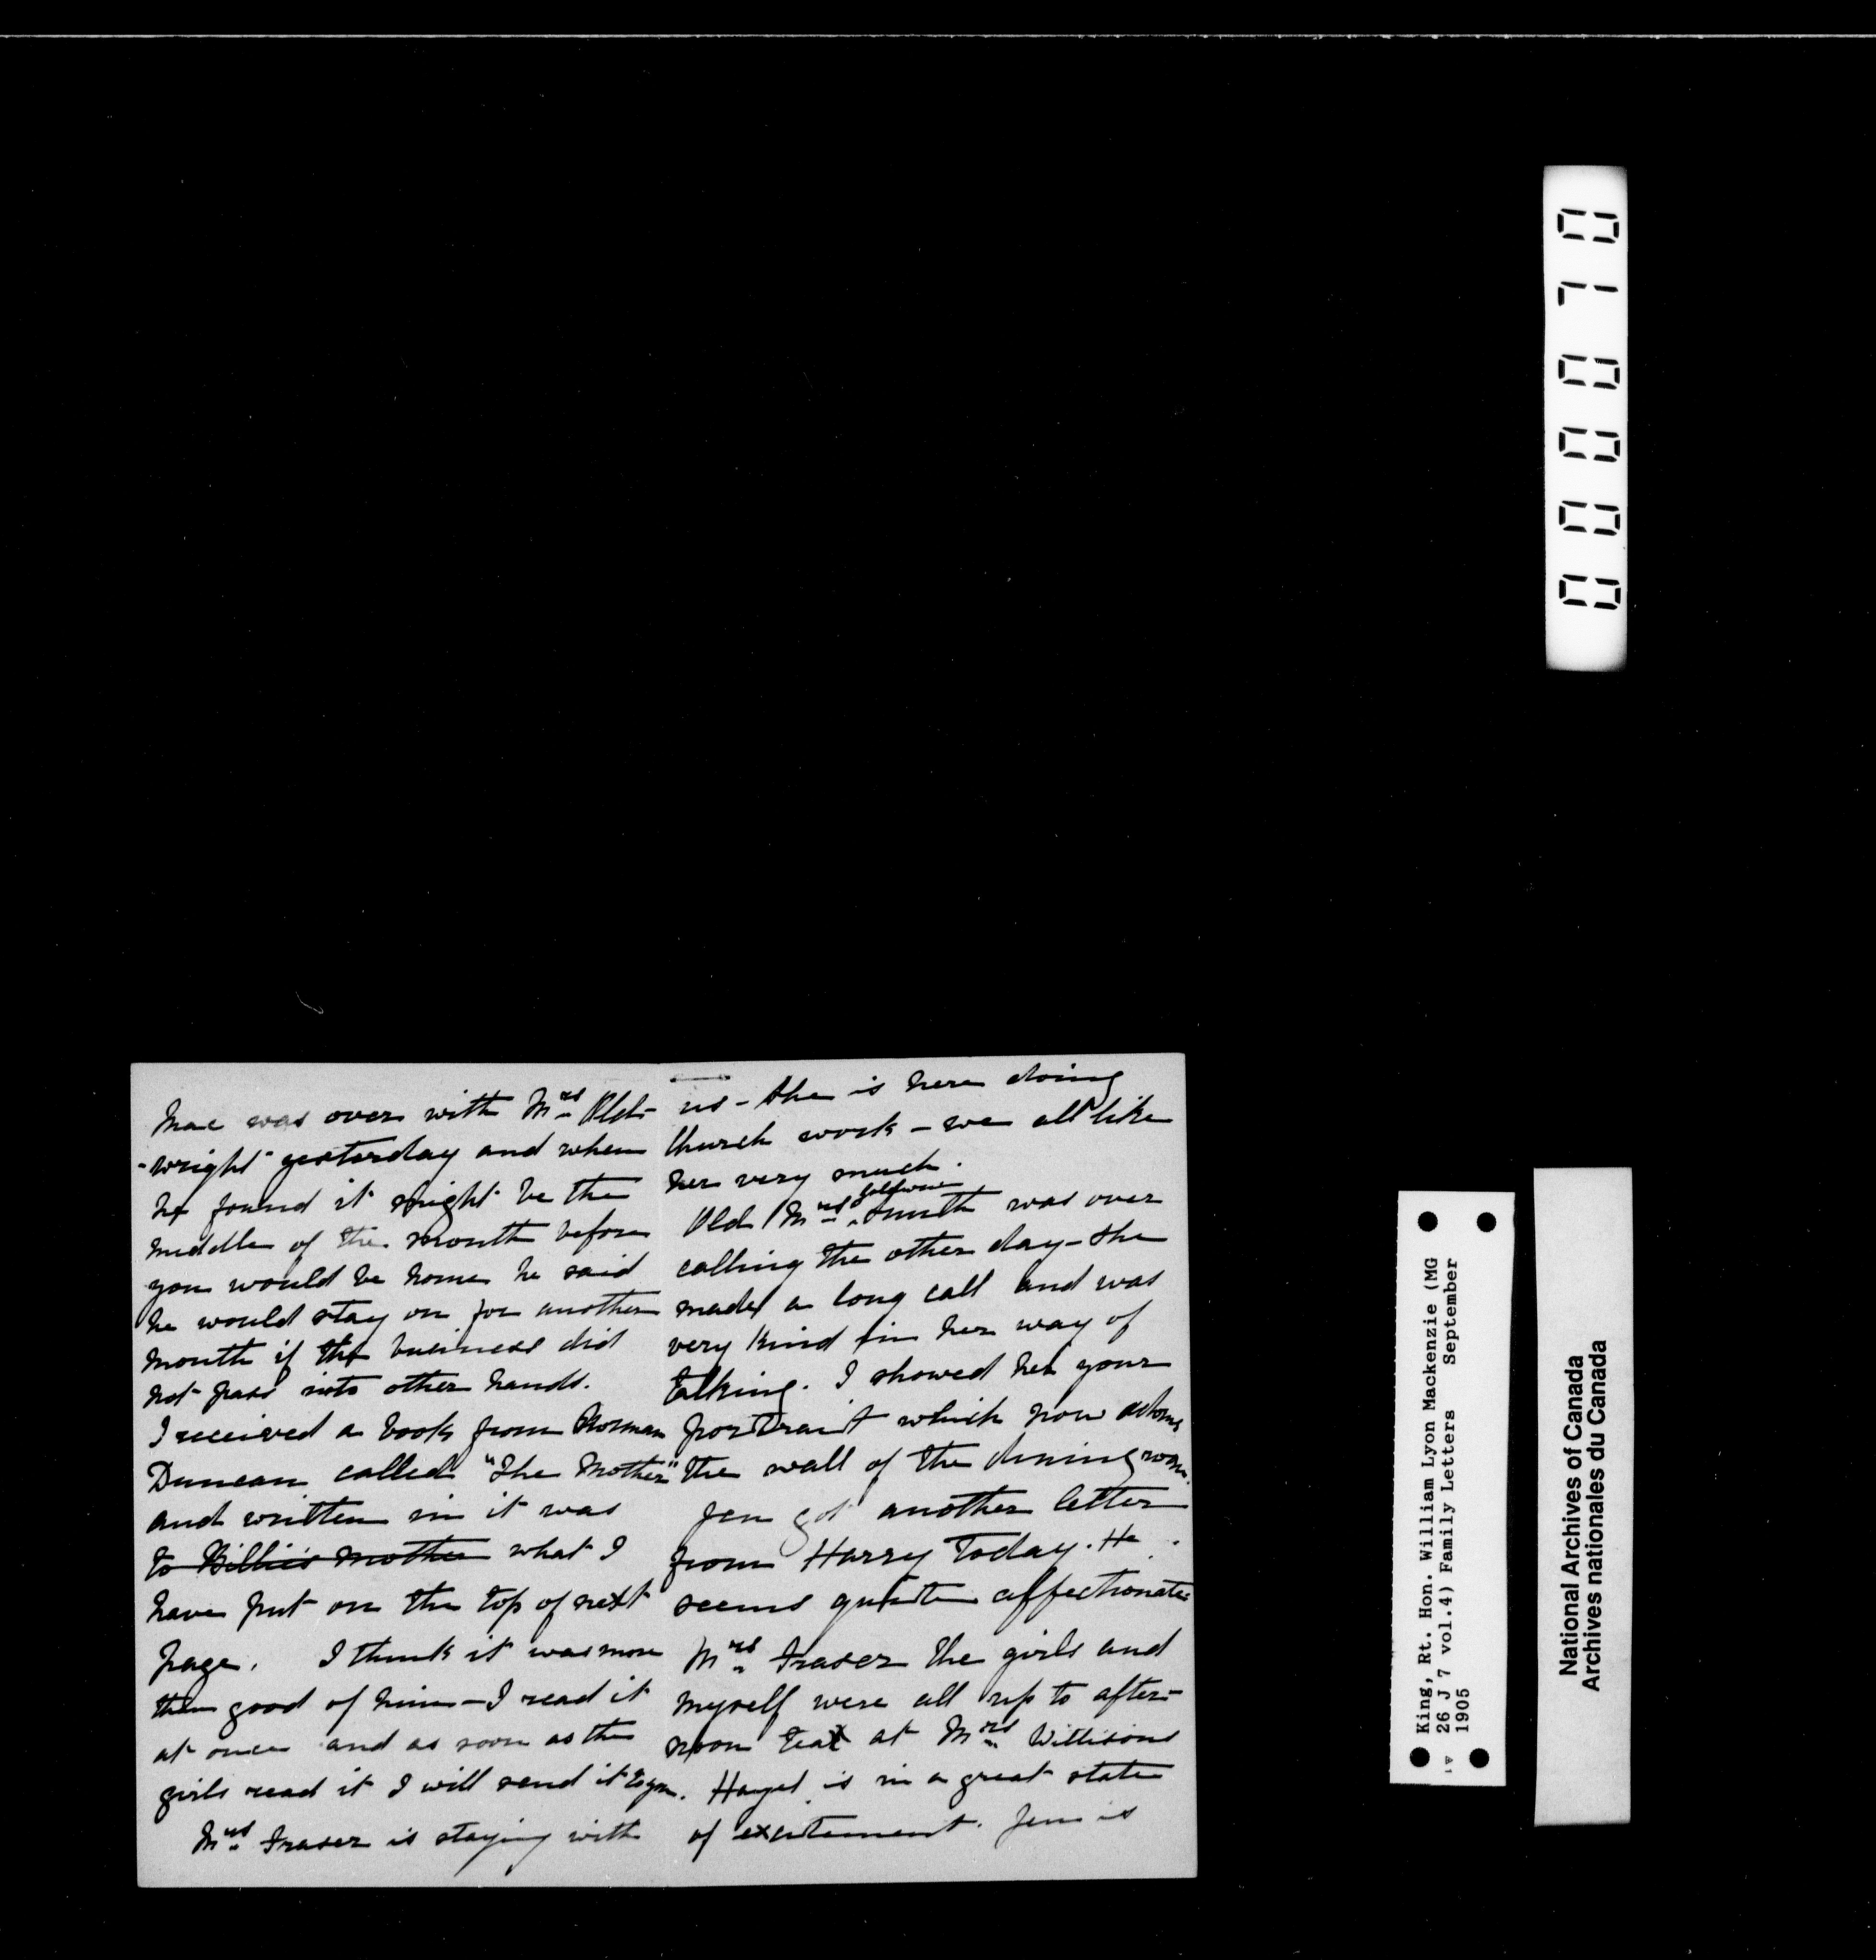 Mac was over with Mrs Old-
-wright yesterday and when
he found it might be the
middle of the month before
you would be home he said
he would stay on for another
month if the business did
not pass into other hands.
I received a book from Norman
Duncan called "The Mother"
and written in it was
to Billie's mother what I
have put on the top of next
page. I think it was more
then good of him - I read it
at once and as soon as the
girls read it I will send it to you.
Mrs Fraser is staying with
us - she is here doing
Church work - we all like
her very much.
Old Mrs Goldwin Smith was over
calling the other day - she
made a long call and was
very kind in her way of
talking. I showed her your
portrait which now adorns
the wall of the dining room.
Jen got another letter
from Harry today. He
seems quite affectionate
Mrs Fraser the girls and
myself were all up to after-
noon tea at Mrs Willisons
Hazel is in a great state
of excitement. Jen is
000070
King, Rt. Hon. William Lyon Mackenzie (MG
26 J 7 vol.4) Family Letters September
1905
National Archives of Canada
Archives nationales du Canada